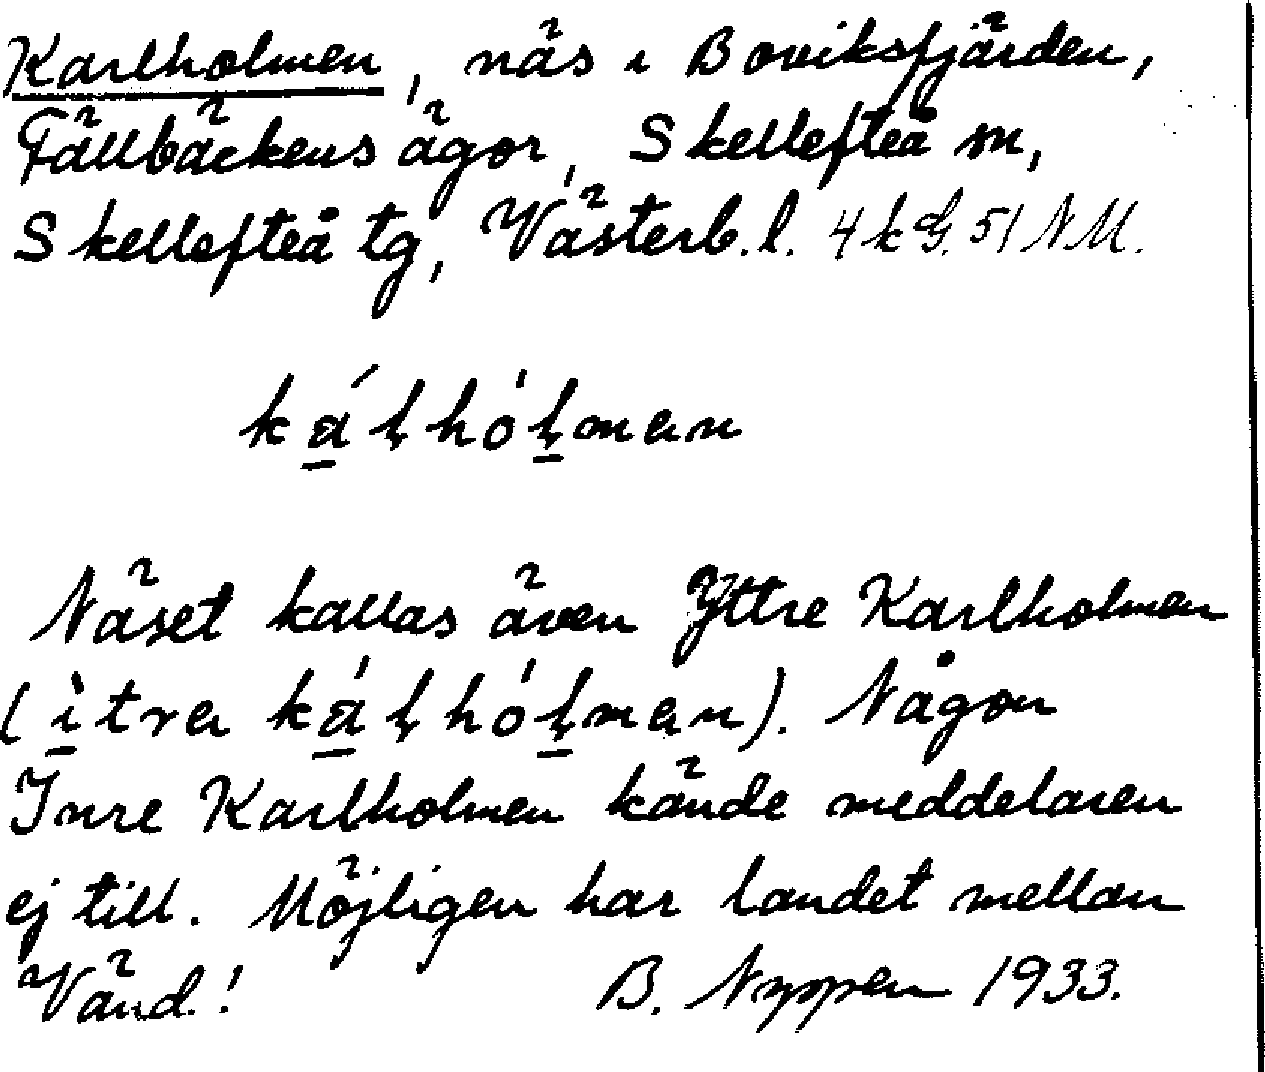 Karlholmen, näs i Boviksfjärden,
Fällbäckens ägor, Skellefteå sn,
Skellefteå tg, Västerb. l. 4 k G. 51 NM.
ká̱ɭhóɭ̱mən
Näset kallas även Yttre Karlholmen
(ì̱trɐ ká̱ɭhóɭ̱mən). Någon
Inre Karlholmen kände meddelaren
ej till. Möjligen har landet mellan
Vänd! B. Nyppen 1933.